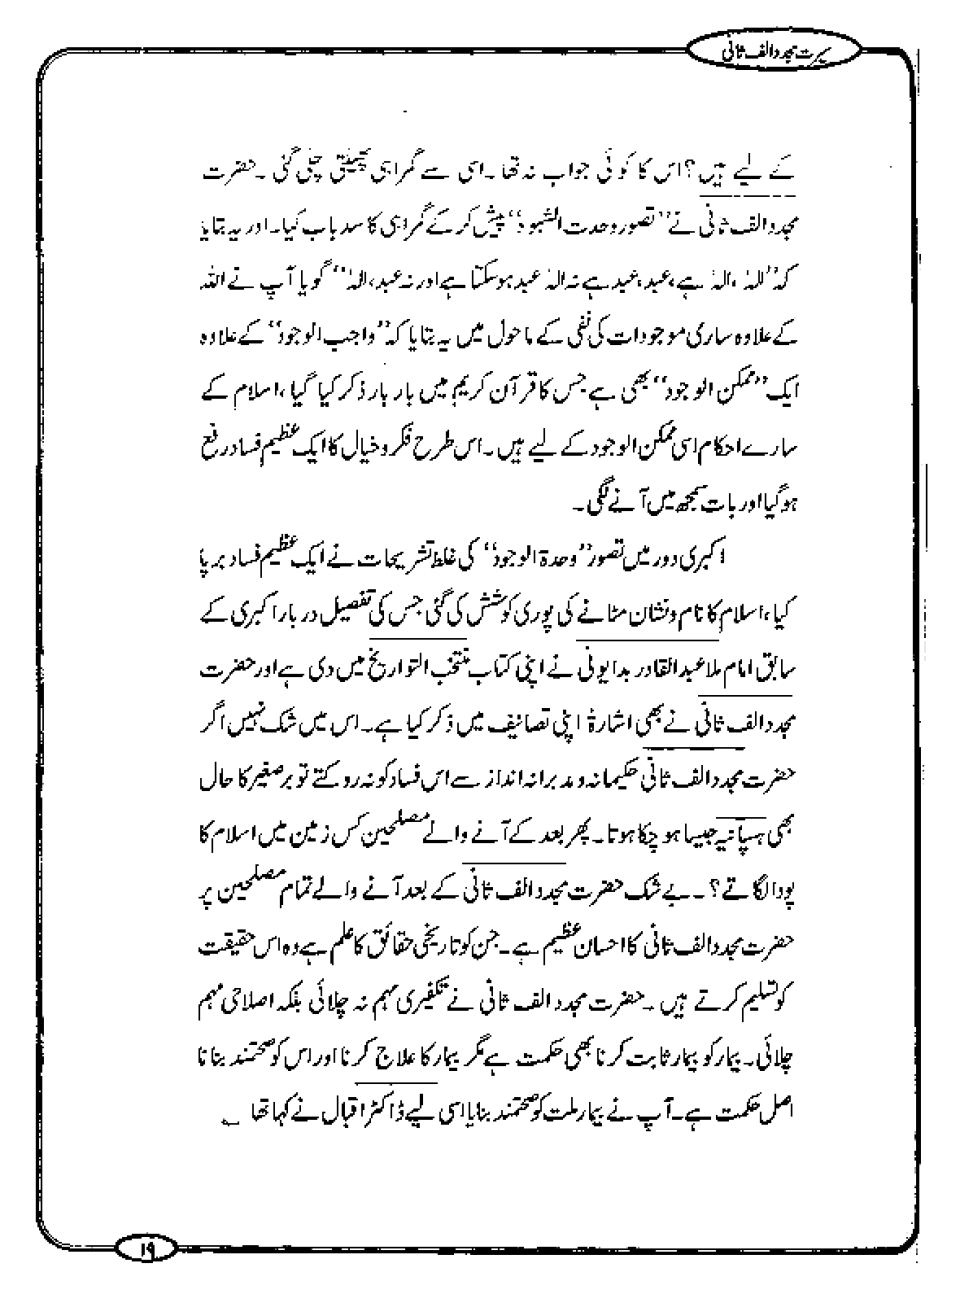 سیرت مجدد الف ثانی
کے لیے ہیں؟ اس کا کوئی جواب نہ تھا۔ اسی سے گمراہی پھیلتی چلی گئی۔ حضرت
مجدد الف ثانی نے ’’تصور وحدت الشہود‘‘ پیش کر کے گمراہی کا سد باب کیا۔ اور یہ بتایا
کہ ’’الٰہ، الٰہ ہے، عبد، عبد ہے نہ الٰہ عبد ہو سکتا ہے اور نہ عبد، الٰہ‘‘ گویا آپ نے اللہ
کے علاوہ ساری موجودات کی نفی کے ماحول میں یہ بتایا کہ ’’واجب الوجود‘‘ کے علاوہ
ایک ’’ممکن الوجود‘‘ بھی ہے جس کا قرآن کریم میں بار بار ذکر کیا گیا، اسلام کے
سارے احکام اسی ممکن الوجود کے لیے ہیں۔ اس طرح فکر و خیال کا ایک عظیم فساد رفع
ہو گیا اور بات سمجھ میں آنے لگی۔
اکبری دور میں تصور ’’وحدۃ الوجود‘‘ کی غلط تشریحات نے ایک عظیم فساد برپا
کیا، اسلام کا نام و نشان مٹانے کی پوری کوشش کی گئی جس کی تفصیل دربار اکبری کے
سابق امام ملا عبدالقادر بدایونی نے اپنی کتاب منتخب التواریخ میں دی ہے اور حضرت
مجدد الف ثانی نے بھی اشارۃً اپنی تصانیف میں ذکر کیا ہے۔ اس میں شک نہیں اگر
حضرت مجدد الف ثانی حکیمانہ و مدبرانہ انداز سے اس فساد کو نہ روکتے تو برصغیر کا حال
بھی ہسپانیہ جیسا ہو چکا ہوتا۔ پھر بعد کے آنے والے مصلحین کس زمین میں اسلام کا
پودا لگاتے؟۔ بے شک حضرت مجدد الف ثانی کے بعد آنے والے تمام مصلحین پر
حضرت مجدد الف ثانی کا احسان عظیم ہے۔ جن کو تاریخی حقائق کا علم ہے وہ اس حقیقت
کو تسلیم کرتے ہیں۔ حضرت مجدد الف ثانی نے تکفیری مہم نہ چلائی بلکہ اصلاحی مہم
چلائی۔ بیمار کو بیمار ثابت کرنا بھی حکمت ہے مگر بیمار کا علاج کرنا اور اس کو صحتمند بنانا
اصل حکمت ہے۔ آپ نے بیمار ملت کو صحتمند بنایا اسی لیے ڈاکٹر اقبال نے کہا تھا ؎
۱۹